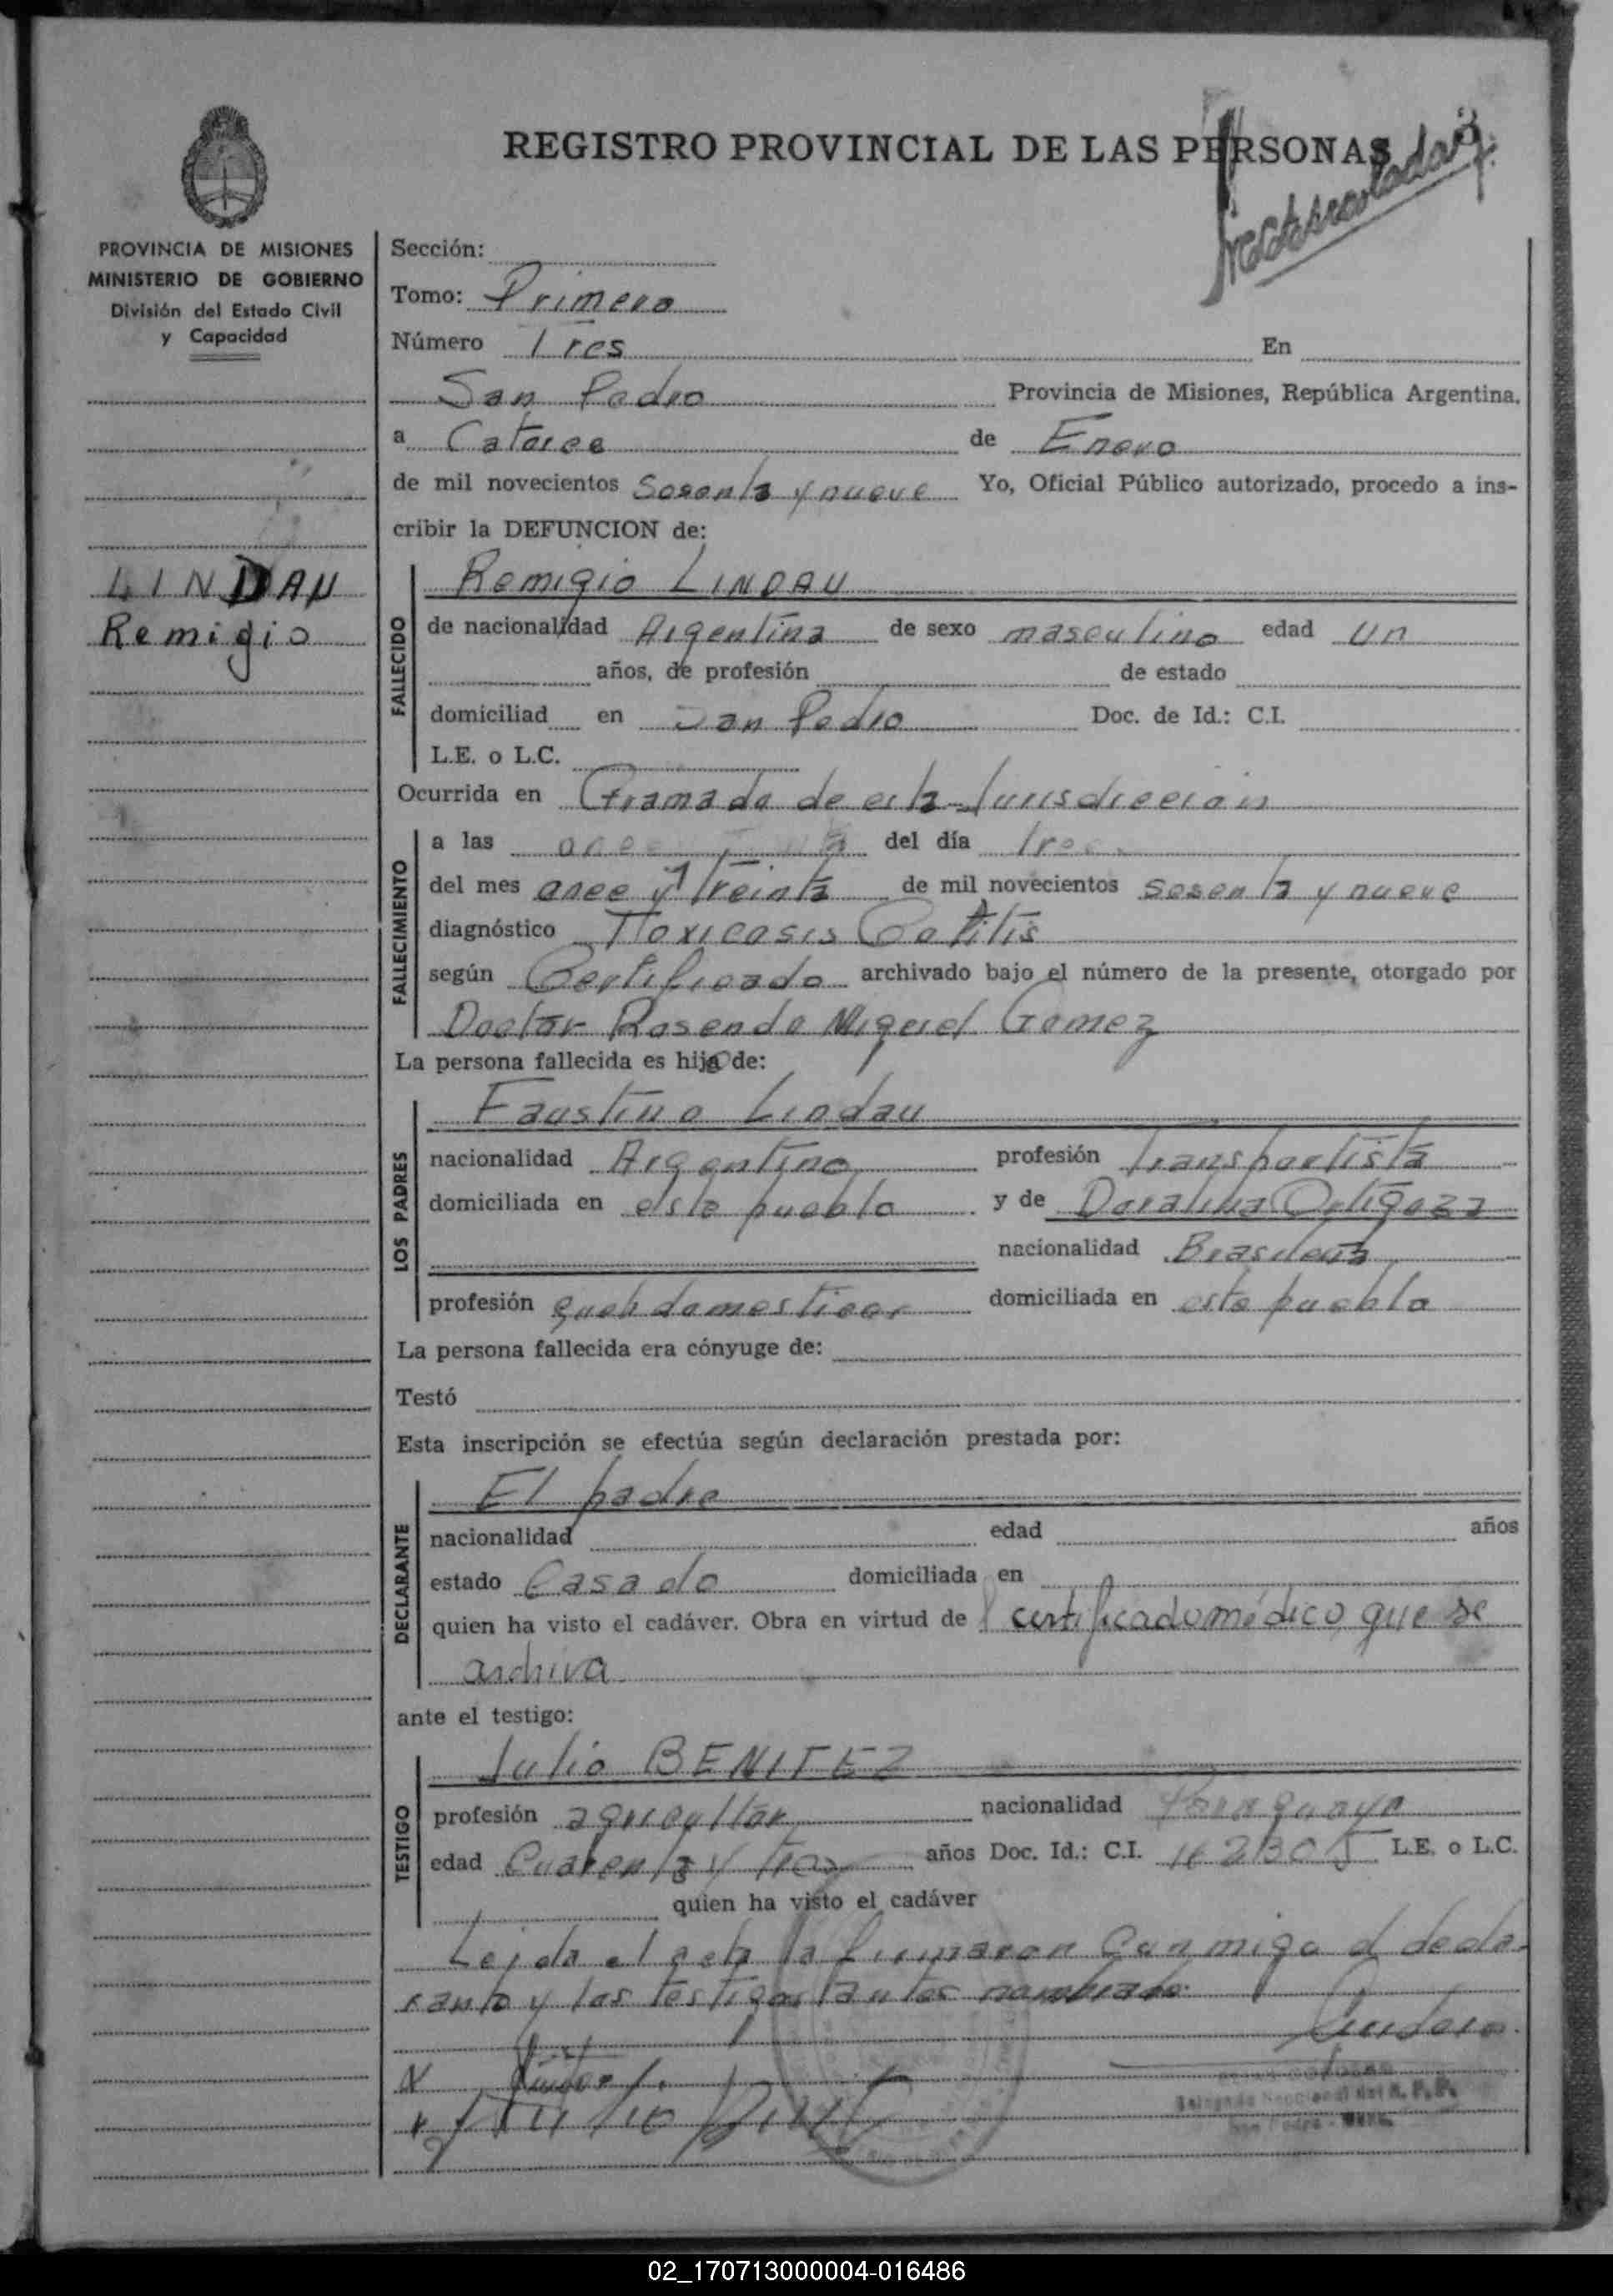 REGISTRO PROVINCIAL DE LAS PERSONAS
PROVINCIA DE MISIONES
MINISTERIO DE GOBIERNO
División del Estado Civil
y Capacidad
LINDAU
Remigio
Sección:
Tomo: Primero
Número Tres En
San Pedro Provincia de Misiones, República Argentina.
a Catorce de Enero
de mil novecientos Sesenta y nueve Yo, Oficial Público autorizado, procedo a ins-
cribir la DEFUNCION de:
FALLECIDO
Remigio LINDAU
de nacionalidad Argentina de sexo masculino edad un
años, de profesión de estado
domiciliad en San Pedro Doc. de Id.: C.I.
L.E. o L.C.
Ocurrida en Gramado de esta Jurisdiccion
FALLECIMIENTO
a las once del día
del mes once y treinta de mil novecientos sesenta y nueve
diagnóstico Toxicosis
según Certificado archivado bajo el número de la presente, otorgado por
Doctor Rosendo Miguel Gomez
La persona fallecida es hijo de:
LOS PADRES
Faustino Lindau
nacionalidad Argentino profesión transportista
domiciliada en este pueblo y de Doralina Ortigoza
nacionalidad Brasileña
profesión domesticos domiciliada en este pueblo
La persona fallecida era cónyuge de:
Testó
Esta inscripción se efectúa según declaración prestada por:
DECLARANTE
El padre
nacionalidad edad años
estado Casado domiciliada en
quien ha visto el cadáver. Obra en virtud de l certificado médico que se
archiva
ante el testigo:
TESTIGO
Julio BENITEZ
profesión agricultor nacionalidad Paraguayo
edad Cuarenta y tres años Doc. Id.: C.I. L.E. o L.C.
quien ha visto el cadáver
Leida el acta la firmaron conmigo el decla-
rante y los testigos antes nombrado
02_170713000004-016486